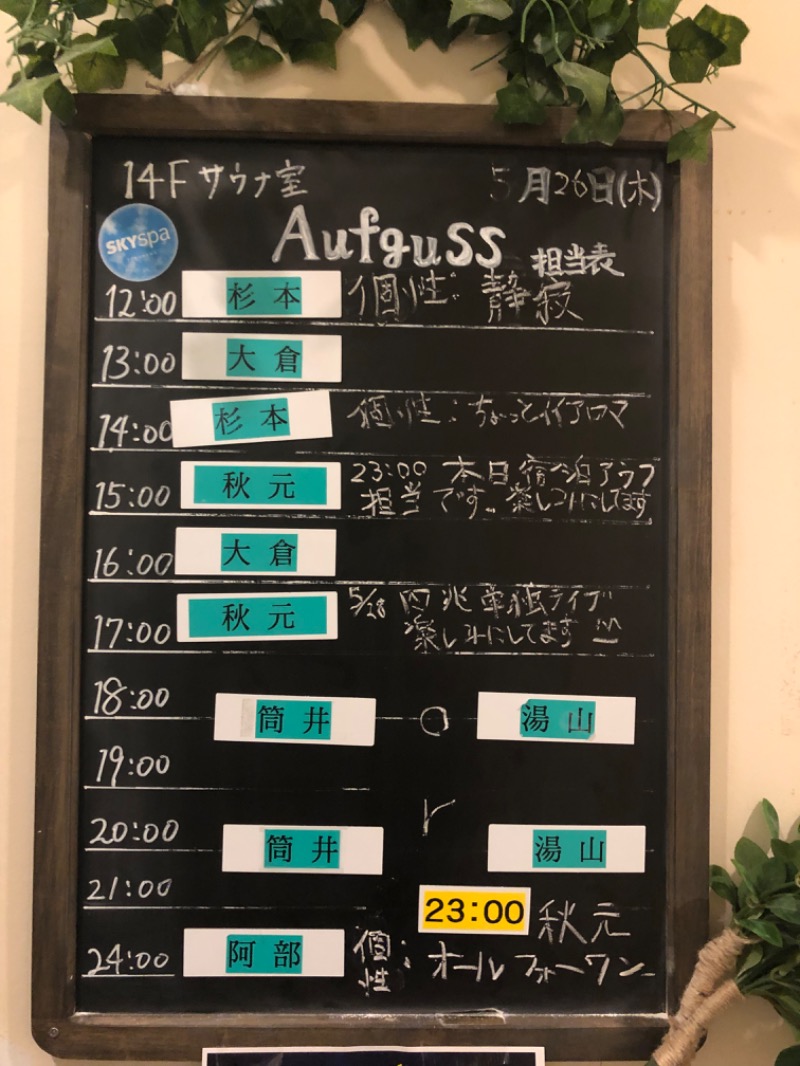 14Fサウナ室 5月26日(木)
SKYspa
Aufguss 担当表
12:00 杉本 個性: 静寂
13:00 大倉
14:00 杉本 個性:ちょっとイイアロマ
15:00 秋元 23:00 本日宿泊アウフ
担当です 楽しみにしてます
16:00 大倉
17:00 秋元 5/28 四兆単独ライブ
楽しみにしてます
18:00
筒井 o 湯山
19:00
r
20:00
筒井 湯山
21:00
23:00 秋元
24:00 阿部 個性: オールフォーワン